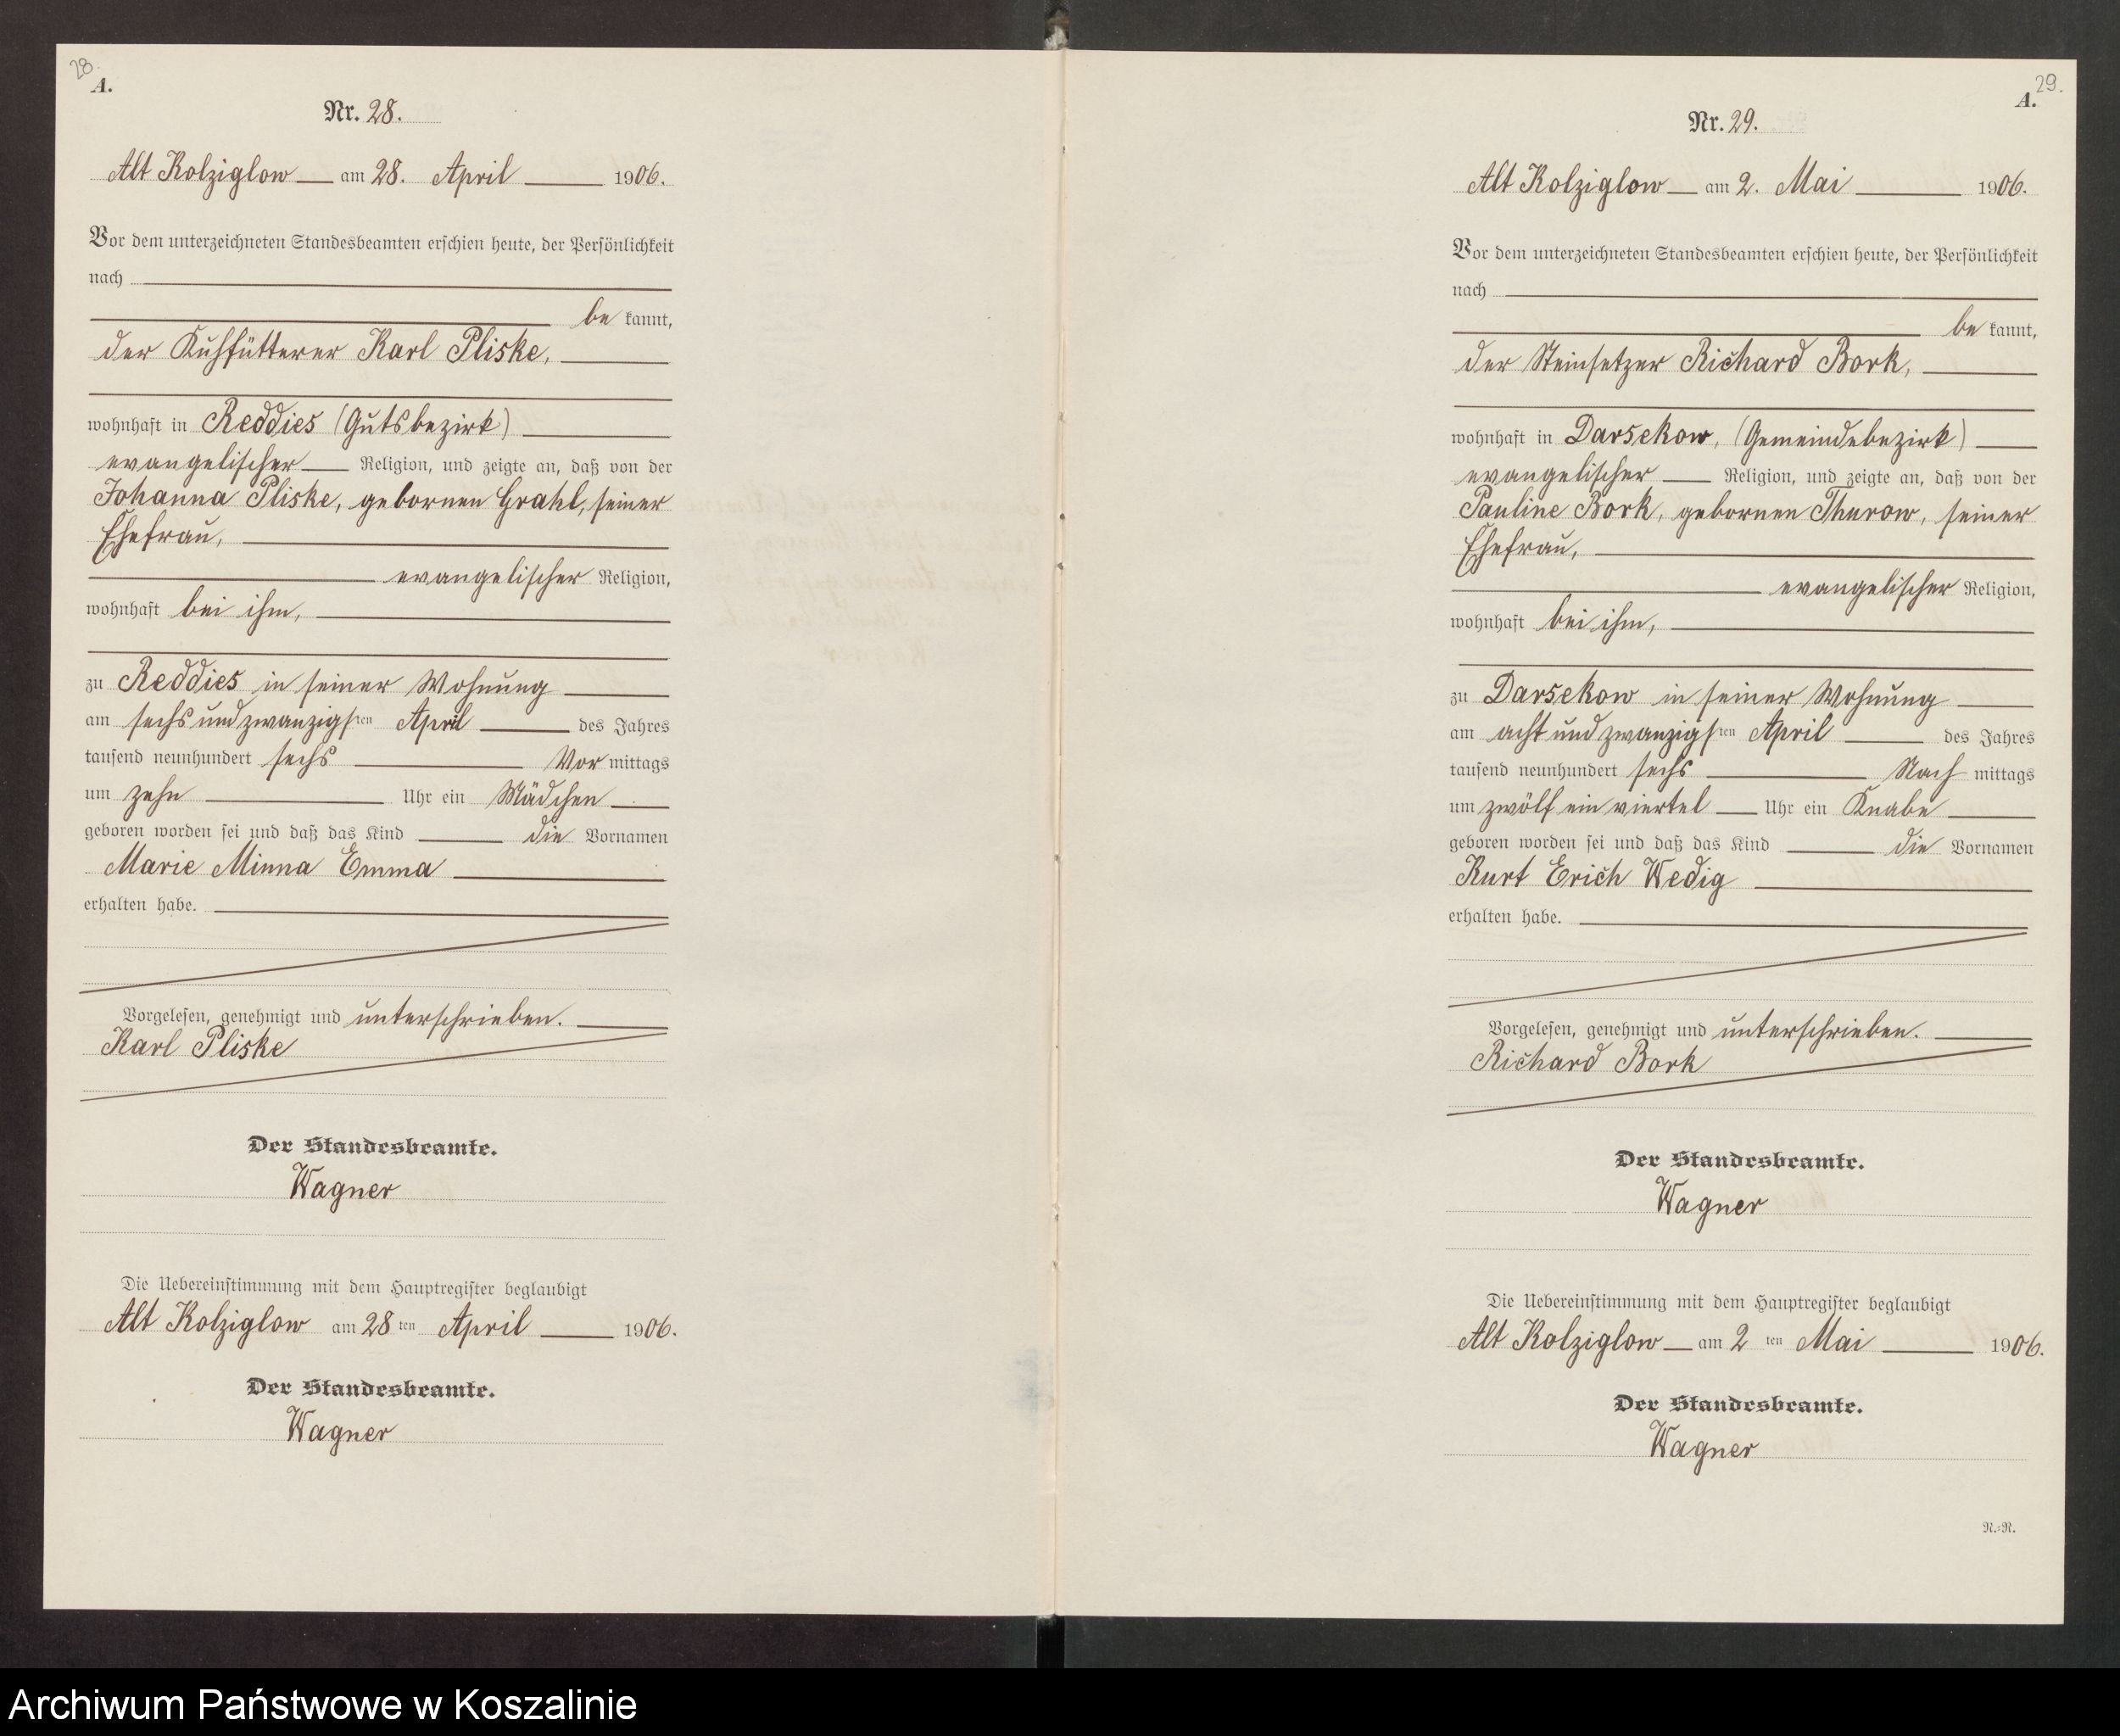 28.
A.
Nr. 28.
Alt Kolziglow am 28. April 1906.
Vor dem unterzeichneten Standesbeamten erschien heute, der Persönlichkeit
nach
be kannt,
der Kuhfütterer Karl Pliske,
wohnhaft in Reddies (Gutsbezirk)
evangelischer Religion, und zeigte an, daß von der
Johanna Pliske, gebornen Grahl, seiner
Ehefrau,
evangelischer Religion,
wohnhaft bei ihm,
zu Reddies in seiner Wohnung
am sechs und zwanzigsten April des Jahres
tausend neunhundert sechs Vor mittags
um zehn Uhr ein Mädchen
geboren worden sei und daß das Kind die Vornamen
Marie Minna Emma
erhalten habe.
Vorgelesen, genehmigt und unterschrieben.
Karl Pliske
Der Standesbeamte.
Wagner
Die Uebereinstimmung mit dem Hauptregister beglaubigt
Alt Kolziglow am 28 ten April 1906.
Der Standesbeamte.
Wagner
29.
A.
Nr. 29.
Alt Kolziglow am 2. Mai 1906.
Vor dem unterzeichneten Standesbeamten erschien heute, der Persönlichkeit
nach
be kannt,
der Steinsetzer Richard Bork,
wohnhaft in Darsekow, (Gemeindebezirk)
evangelischer Religion, und zeigte an, daß von der
Pauline Bork, gebornen Thurow, seiner
Ehefrau,
evangelischer Religion,
wohnhaft bei ihm,
zu Darsekow in seiner Wohnung
am acht und zwanzigsten April des Jahres
tausend neunhundert sechs Nach mittags
um zwölf ein viertel Uhr ein Knabe
geboren worden sei und daß das Kind die Vornamen
Kurt Erich Wedig
erhalten habe.
Vorgelesen, genehmigt und unterschrieben.
Richard Bork
Der Standesbeamte.
Wagner
Die Uebereinstimmung mit dem Hauptregister beglaubigt
Alt Kolziglow am 2 ten Mai 1906.
Der Standesbeamte.
Wagner
R.=R.
Archiwum Państwowe w Koszalinie